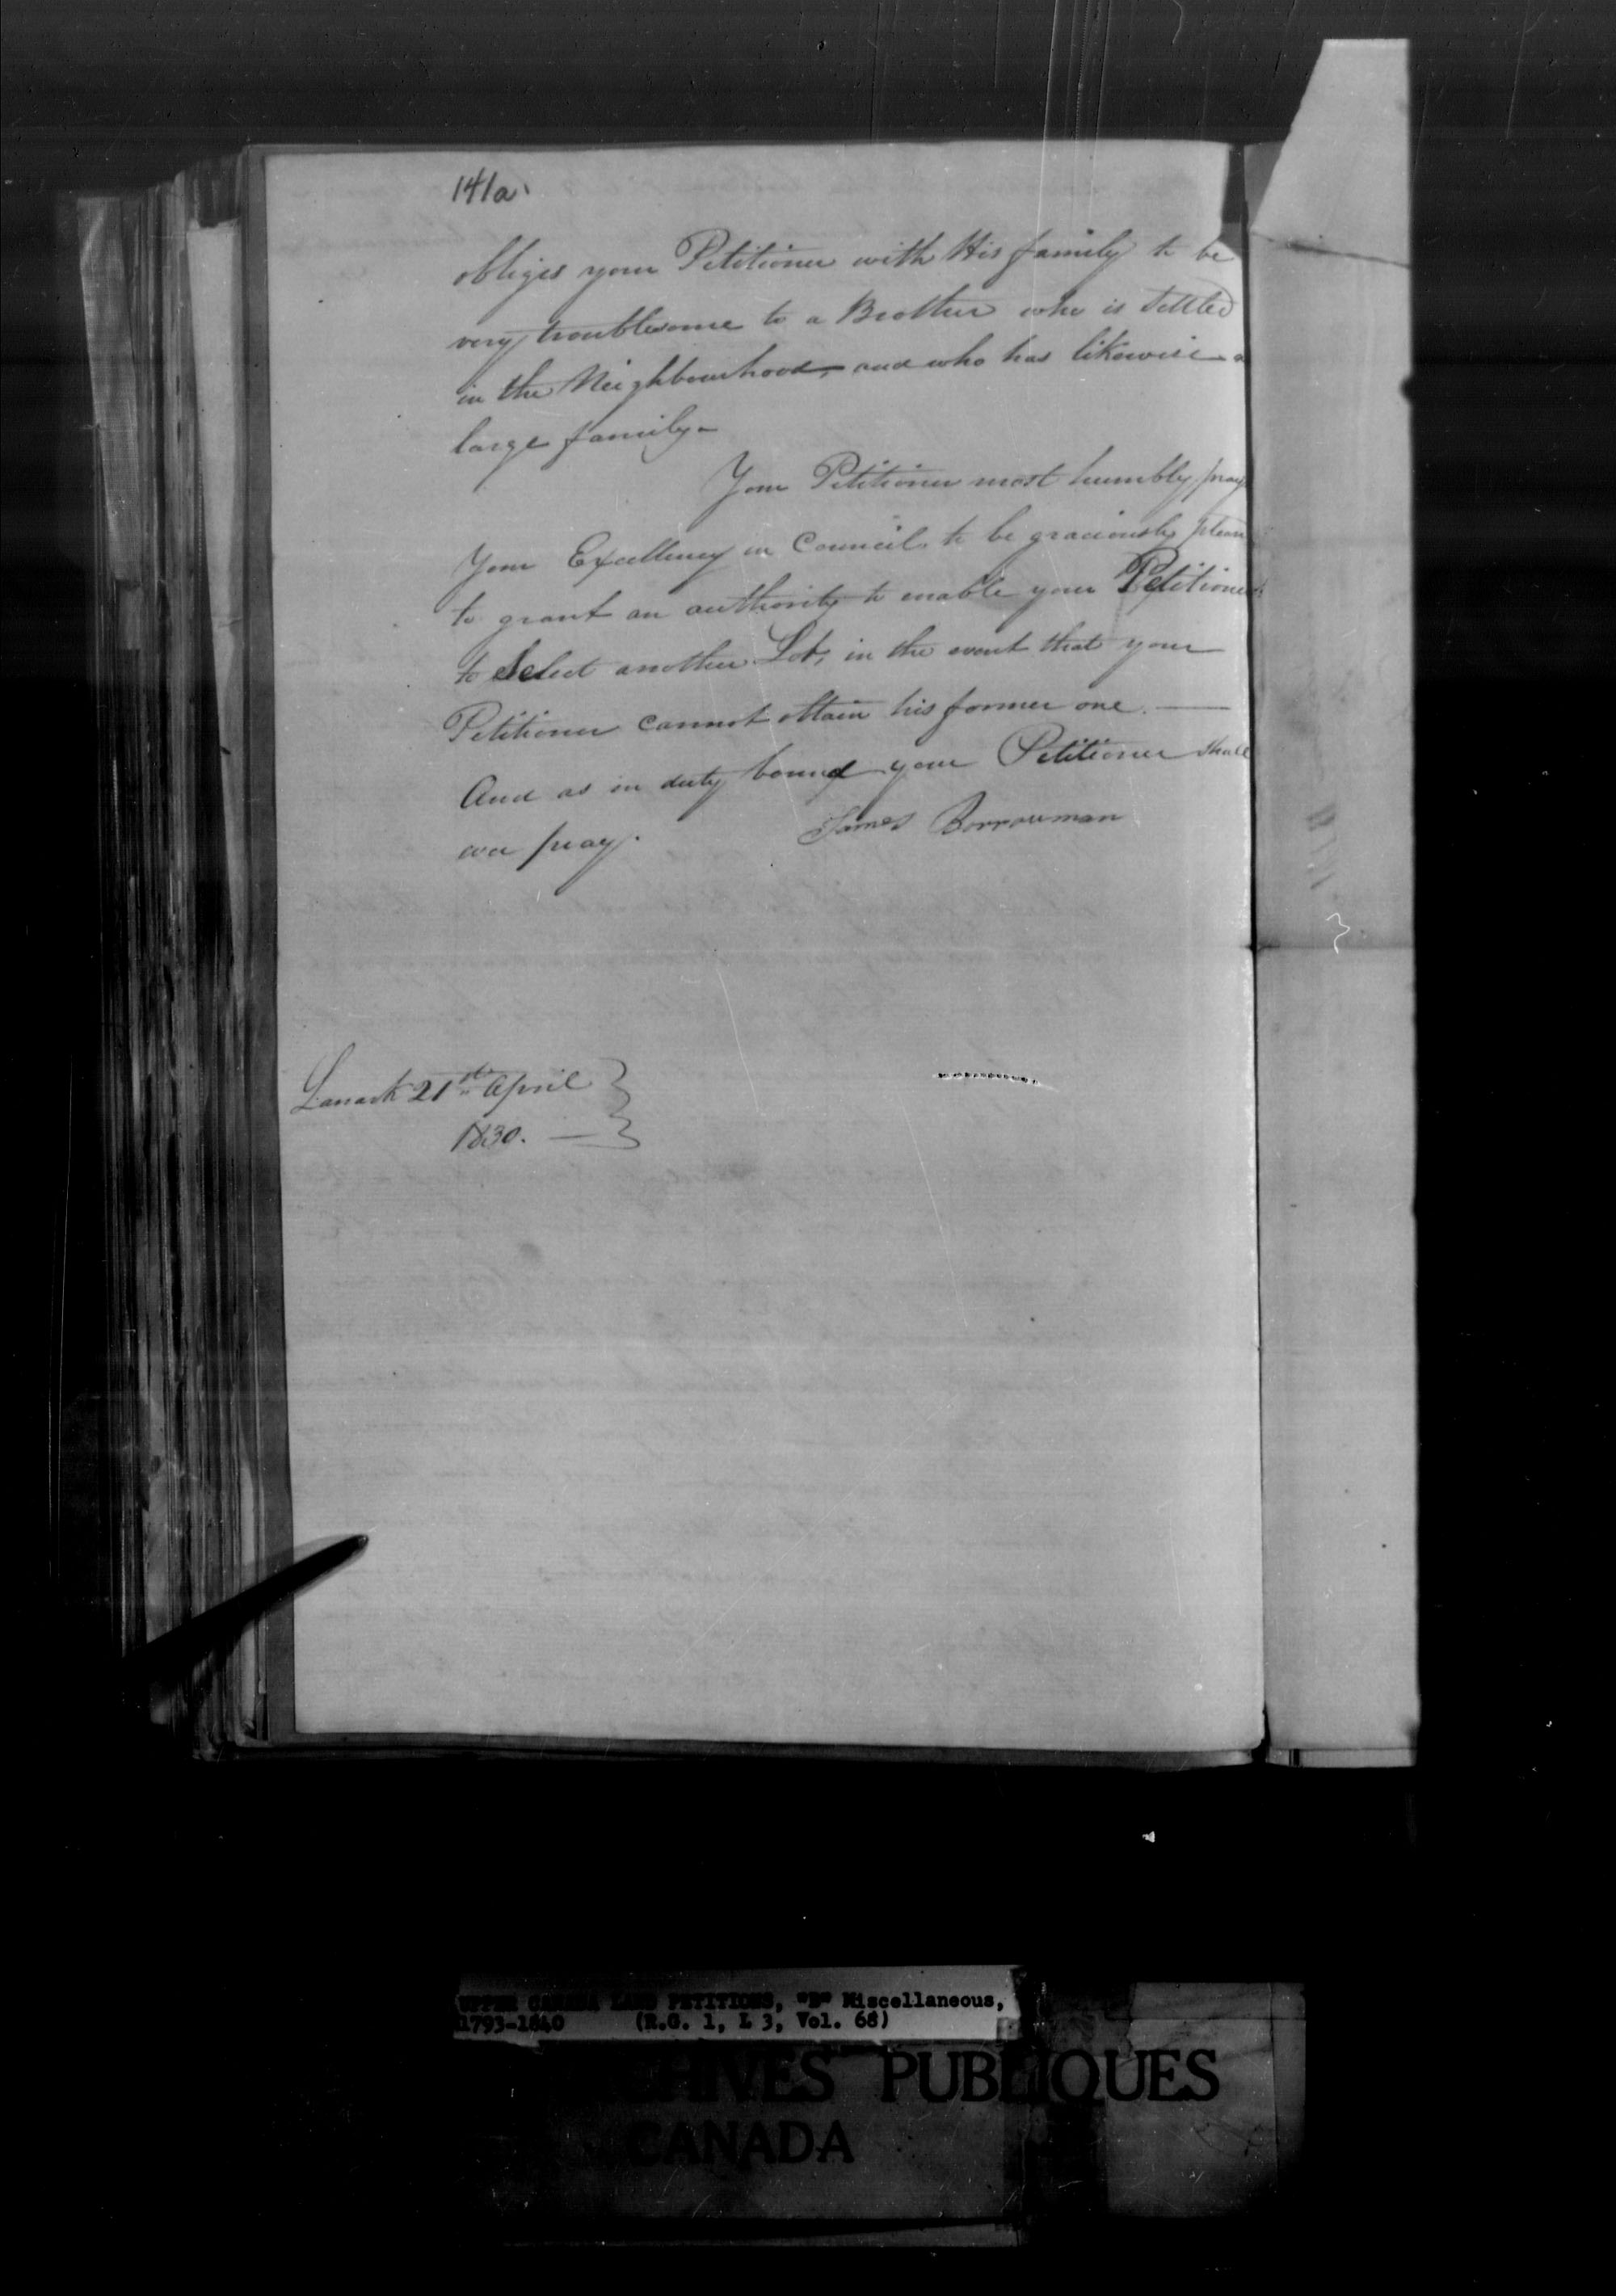 141a
obliges your Petitioner with His family to be
very troublesome to a Brother who is settled
in the Neighbourhood, and who has likewise a
large family.
Your Petitioner most humbly prays
Your Excellency in Council, to be graciously pleas
to grant an authority to enable your Petitioner
to Select another Lot, in the event that your
Petitioner cannot obtain his former one. —
And as in duty bound your Petitioner shall
ever pray.
James Borrowman
Lanark 21st April
1830. —
UPPER CANADA LAND PETITIONS, "B" Miscellaneous,
1793-1840 (R.G. 1, L 3, Vol. 68)
ARCHIVES PUBLIQUES
CANADA